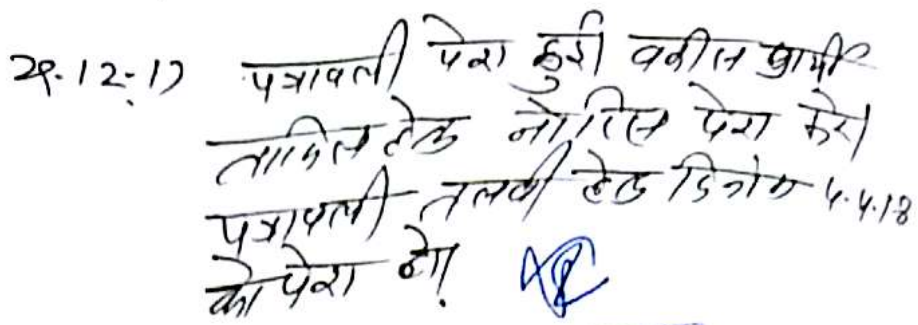 29.12.17 पत्रावली पेश हुई। वकील प्रार्थी
तामिल हेतु नोटिस पेश करे।
पत्रावली तलबी हेतु दिनांक 4.4.18
को पेश हो।